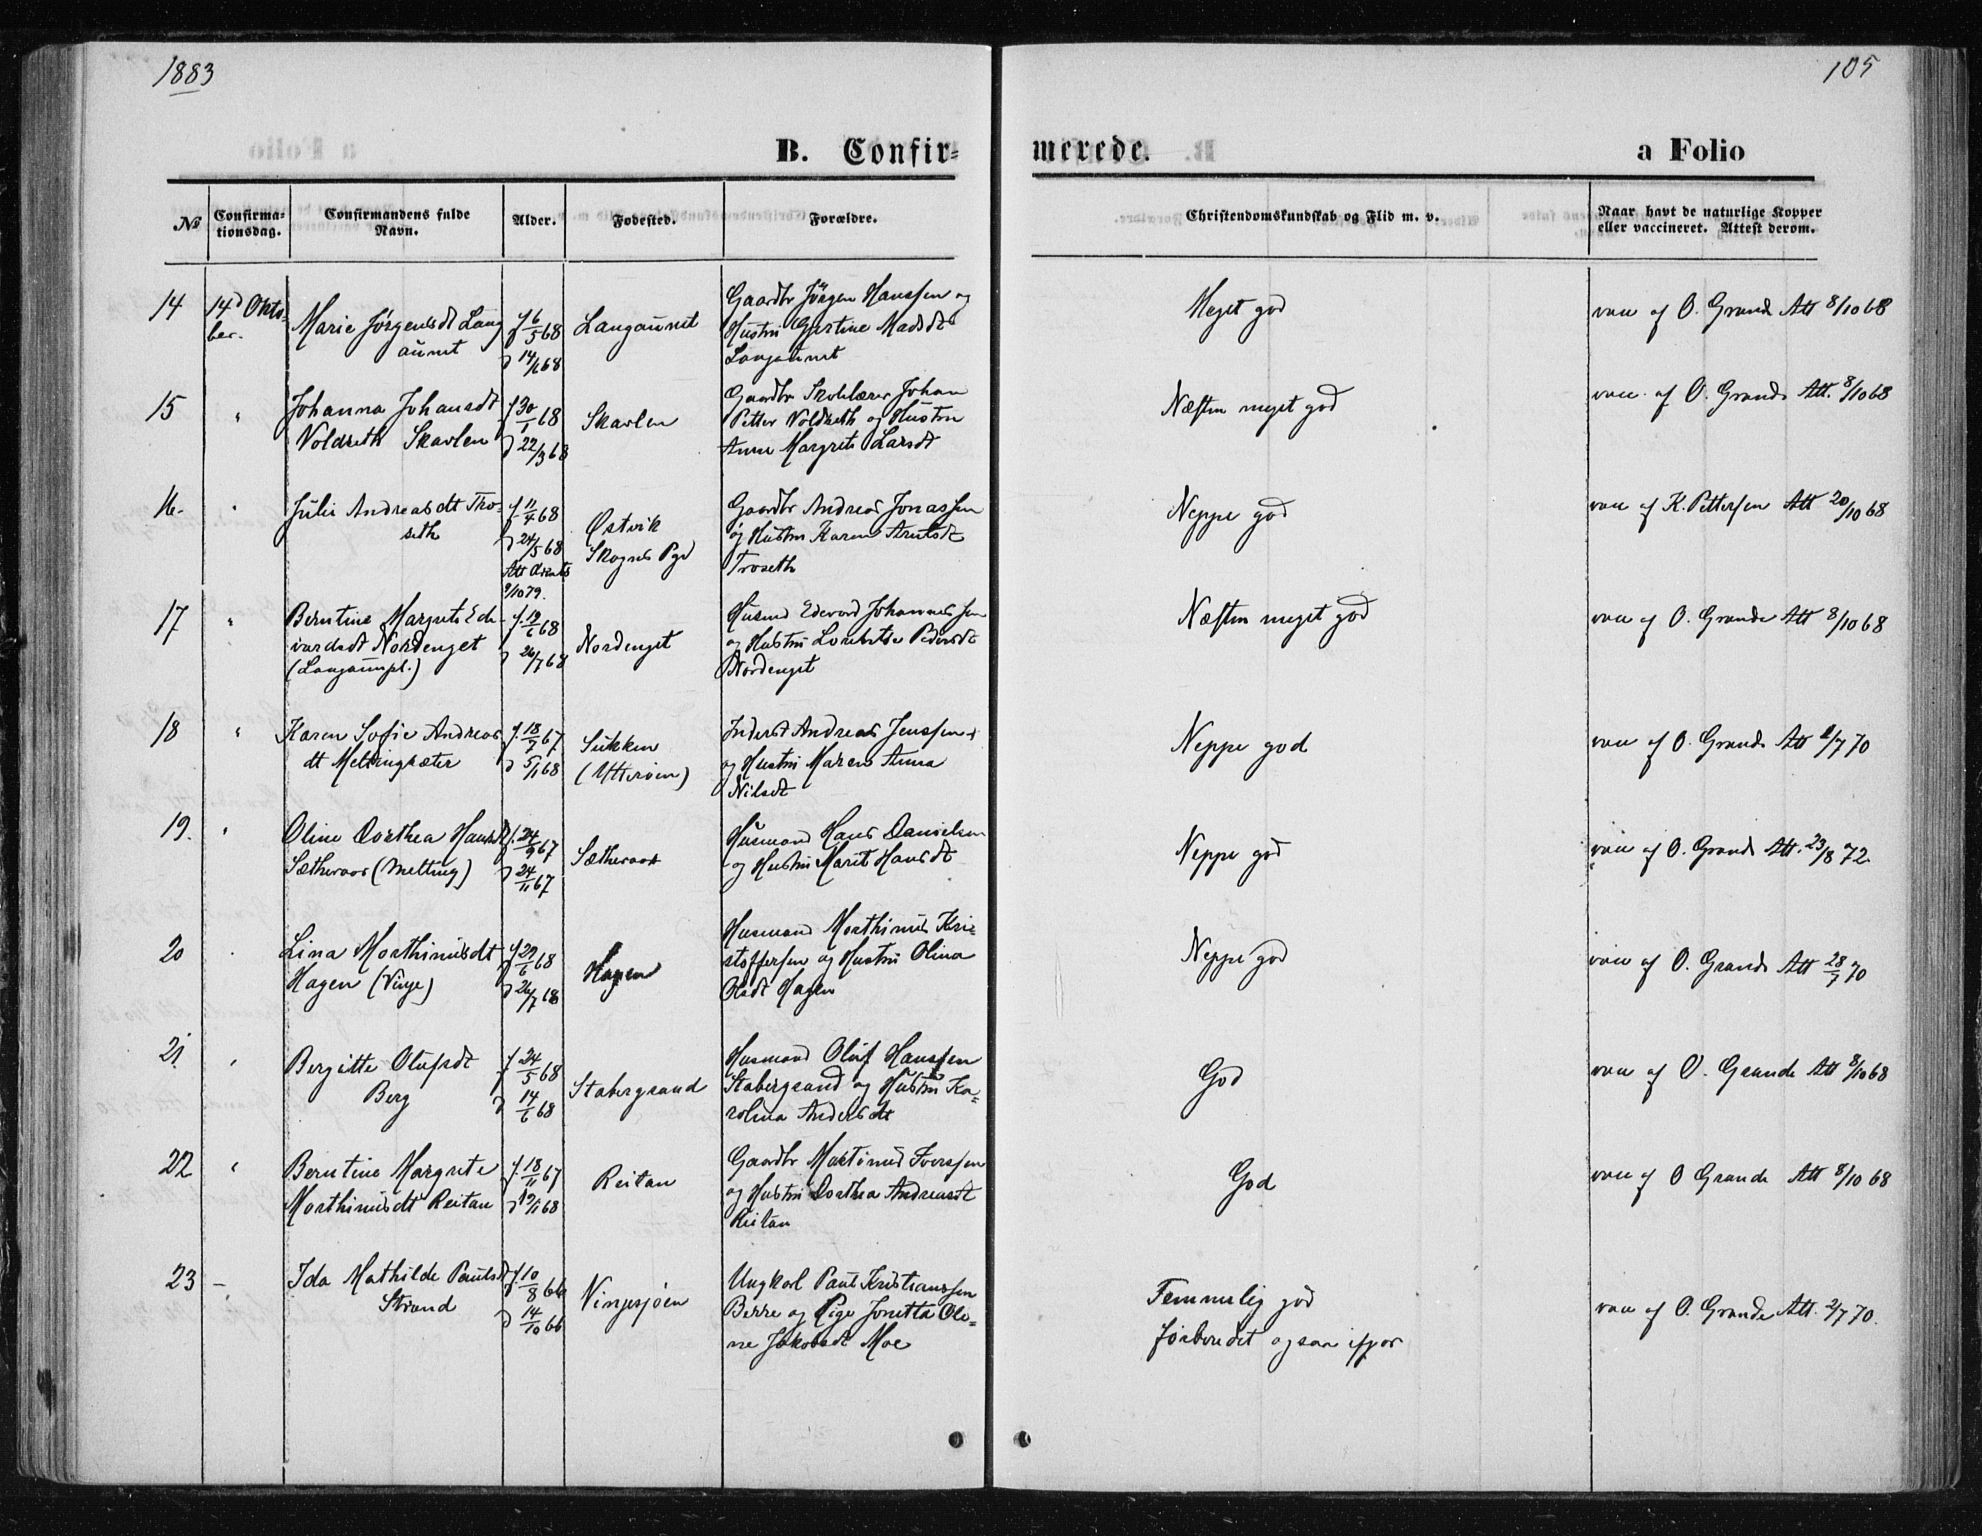 1883
105
B. Confir=
merede.
a Folio
№
Confirma=
tionsdag.
Confirmandens fulde
Navn.
Alder.
Fødested.
Forældre.
Christendomskundskab og Flid m. v.
Naar havt de naturlige Kopper
eller vaccineret. Attest derom.
14
14d Okto-
ber.
Marie Jørgensdt Lang
aunet
f 16/5 68
d 14/6 68
Langaunet
Gaardbr Jörgen Hanssen og
Hustru Gjertine Madsdt
Langaunet
Meget god
vac af O. Grande Att 8/10 68
15
"
Johanna Johansdt
Voldseth Skavlen
f 30/1 68
d 22/3 68
Skavlen
Gaardbr Skolelærer Johan
Petter Voldseth og Hustru
Anne Margrete Larsdt
Næsten meget god
vac. af O. Grande Att. 8/10 68
16.
"
Julie Andreasdt Tro-
seth
f 11/4 68
d 24/5 68
Att
9/10 79.
Østvik
Skogns Pgd
Gaardbr Andreas Jonassen
og Hustru Karen Arntsdt
Troseth
Neppe god
vac af K. Pettersen Att 20/10 68
17
"
Berntine Margrete Ed-
vardsdt Nordenget
(Langaunpl.)
f. 19/6 68
d 26/7 68
Nordenget
Husmd Edevard Johannessen
og Hustru Lorentse Pedersdt
Nordenget
Næsten meget god
vac af O. Grande Att 8/10 68
18
"
Karen Sofie Andreas
dt Meltingsæter
f. 18/7 67
d 5/1 68
Sukken
(Ytterøen)
Inderst Andreas Jenssen
og Hustru Maren Anna
Nilsdt
Neppe god
vac af O. Grande Att 2/7 70
19.
"
Oline Dorthea Hansdt
Sætheraas (Melting)
f. 24/9 67
d 24/11 67
Sætheraas
Husmand Hans Danielsen
og Hustru Marit Hansdt
Neppe god
vac af O. Grande Att. 23/8 72.
20
"
Lina Morthinusdt
Hagen (Vinje)
f 29/6 68
d 26/7 68
Hagen
Husmand Morthinus Kri-
stoffersen og Hustru Olina
Olsdt Hagen
Neppe god
vac af O. Grande Att 28/7 70
21.
"
Bergitte Olufsdt
Berg
f 24/5 68
d 14/6 68
Stabergsand
Husmand Oluf Hanssen
Stabergsand og Hustru Ka-
rolina Andersdt
God
vac af O. Grande Att 8/10 68
22
"
Berntine Margrete
Morthinusdt Reitan
f. 18/11 67
d 19/1 68
Reitan
Gaardbr Mortinus Iverssen
og Hustru Dorthea Andreasdt
Reitan
God
vac af O Grande Att 8/10 68
23
-
Ida Mathilde Paulsdt
Strand
f. 10/8 66
d 14/10 66
Vingesjøen
Ungkarl Paul Kristianssen
Berre og Pige Jonetta Ole-
ne Jakobsdt Moe
Temmelig god
forberedet ogsaa ifjor
vac af O. Grande Att. 2/7 70.